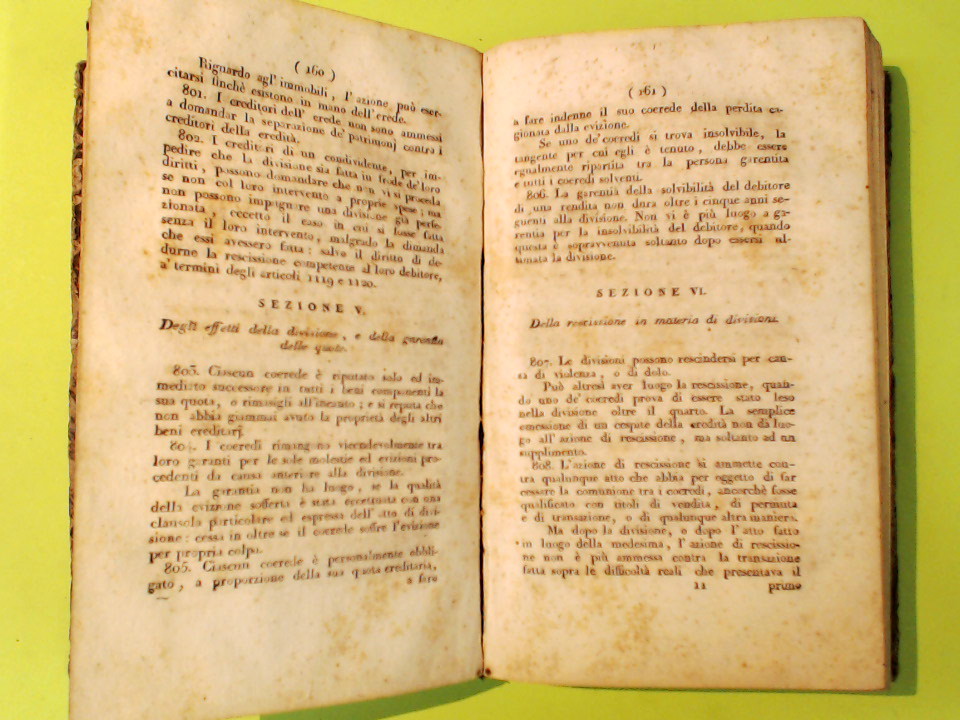 ( 160 )
Riguardo agl' immobili, l' azione può eser-
citarsi finchè esistono in mano dell' erede.
801. I creditori dell' erede non sono ammessi
a domandar la separazione de' patrimonj contro i
creditori della eredità.
802. I creditori di un condividente, per im-
pedire che la divisione sia fatta in frode de' loro
diritti, possono domandare che non vi si proceda
se non col loro intervento a proprie spese; ma
non possono impugnare una divisione già perfe-
zionata, eccetto il caso in cui si fosse fatta
senza il loro intervento, malgrado la dimanda
che essi avessero fatta: salvo il diritto di de-
durne la rescissione competente al loro debitore,
a' termini degli articoli 1119 e 1120.
SEZIONE V.
Degli effetti della divisione, e della garentia
delle quote.
803. Ciascun coerede è riputato solo ed im-
mediato successore in tutti i beni componenti la
sua quota, o rimasigli all' incanto; e si reputa che
non abbia giammai avuto la proprietà degli altri
beni ereditarj.
804. I coeredi rimangono vicendevolmente tra
loro garanti per le sole molestie ed evizioni pro-
cedenti da causa anteriore alla divisione.
La garantia non ha luogo, se la qualità
della evizione sofferta è stata eccettuata con una
clausola particolare ed espressa dell' atto di divi-
sione: cessa in oltre se il coerede soffre l' evizione
per propria colpa.
805. Ciascun coerede è personalmente obbli-
gato, a proporzione della sua quota ereditaria,
a fare
( 161 )
a fare indenne il suo coerede della perdita ca-
gionata dalla evizione.
Se uno de' coeredi si trova insolvibile, la
tangente per cui egli è tenuto, debbe essere
egualmente ripartita tra la persona garentita
e tutti i coeredi solventi.
806. La garentia della solvibilità del debitore
di una rendita non dura oltre i cinque anni se-
guenti alla divisione. Non vi è più luogo a ga-
rentia per la insolvibilità del debitore, quando
questa è sopravvenuta soltanto dopo essersi ul-
timata la divisione.
SEZIONE VI.
Della rescissione in materia di divisioni.
807. Le divisioni possono rescindersi per cau-
sa di violenza, o di dolo.
Può altresì aver luogo la rescissione, quan-
do uno de' coeredi prova di essere stato leso
nella divisione oltre il quarto. La semplice
omessione di un cespite della eredità non dà luo-
go all' azione di rescissione, ma soltanto ad un
supplimento.
808. L' azione di rescissione si ammette con-
tra qualunque atto che abbia per oggetto di far
cessare la comunione tra i coeredi, ancorchè fosse
qualificato con titoli di vendita, di permuta
e di transazione, o di qualunque altra maniera.
Ma dopo la divisione, o dopo l' atto fatto
in luogo della medesima, l' azione di rescissio-
ne non è più ammessa contra la transazione
fatta sopra le difficoltà reali che presentava il
11 primo